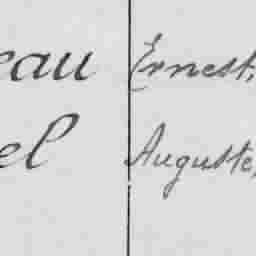 eau Ernest,
el Auguste,